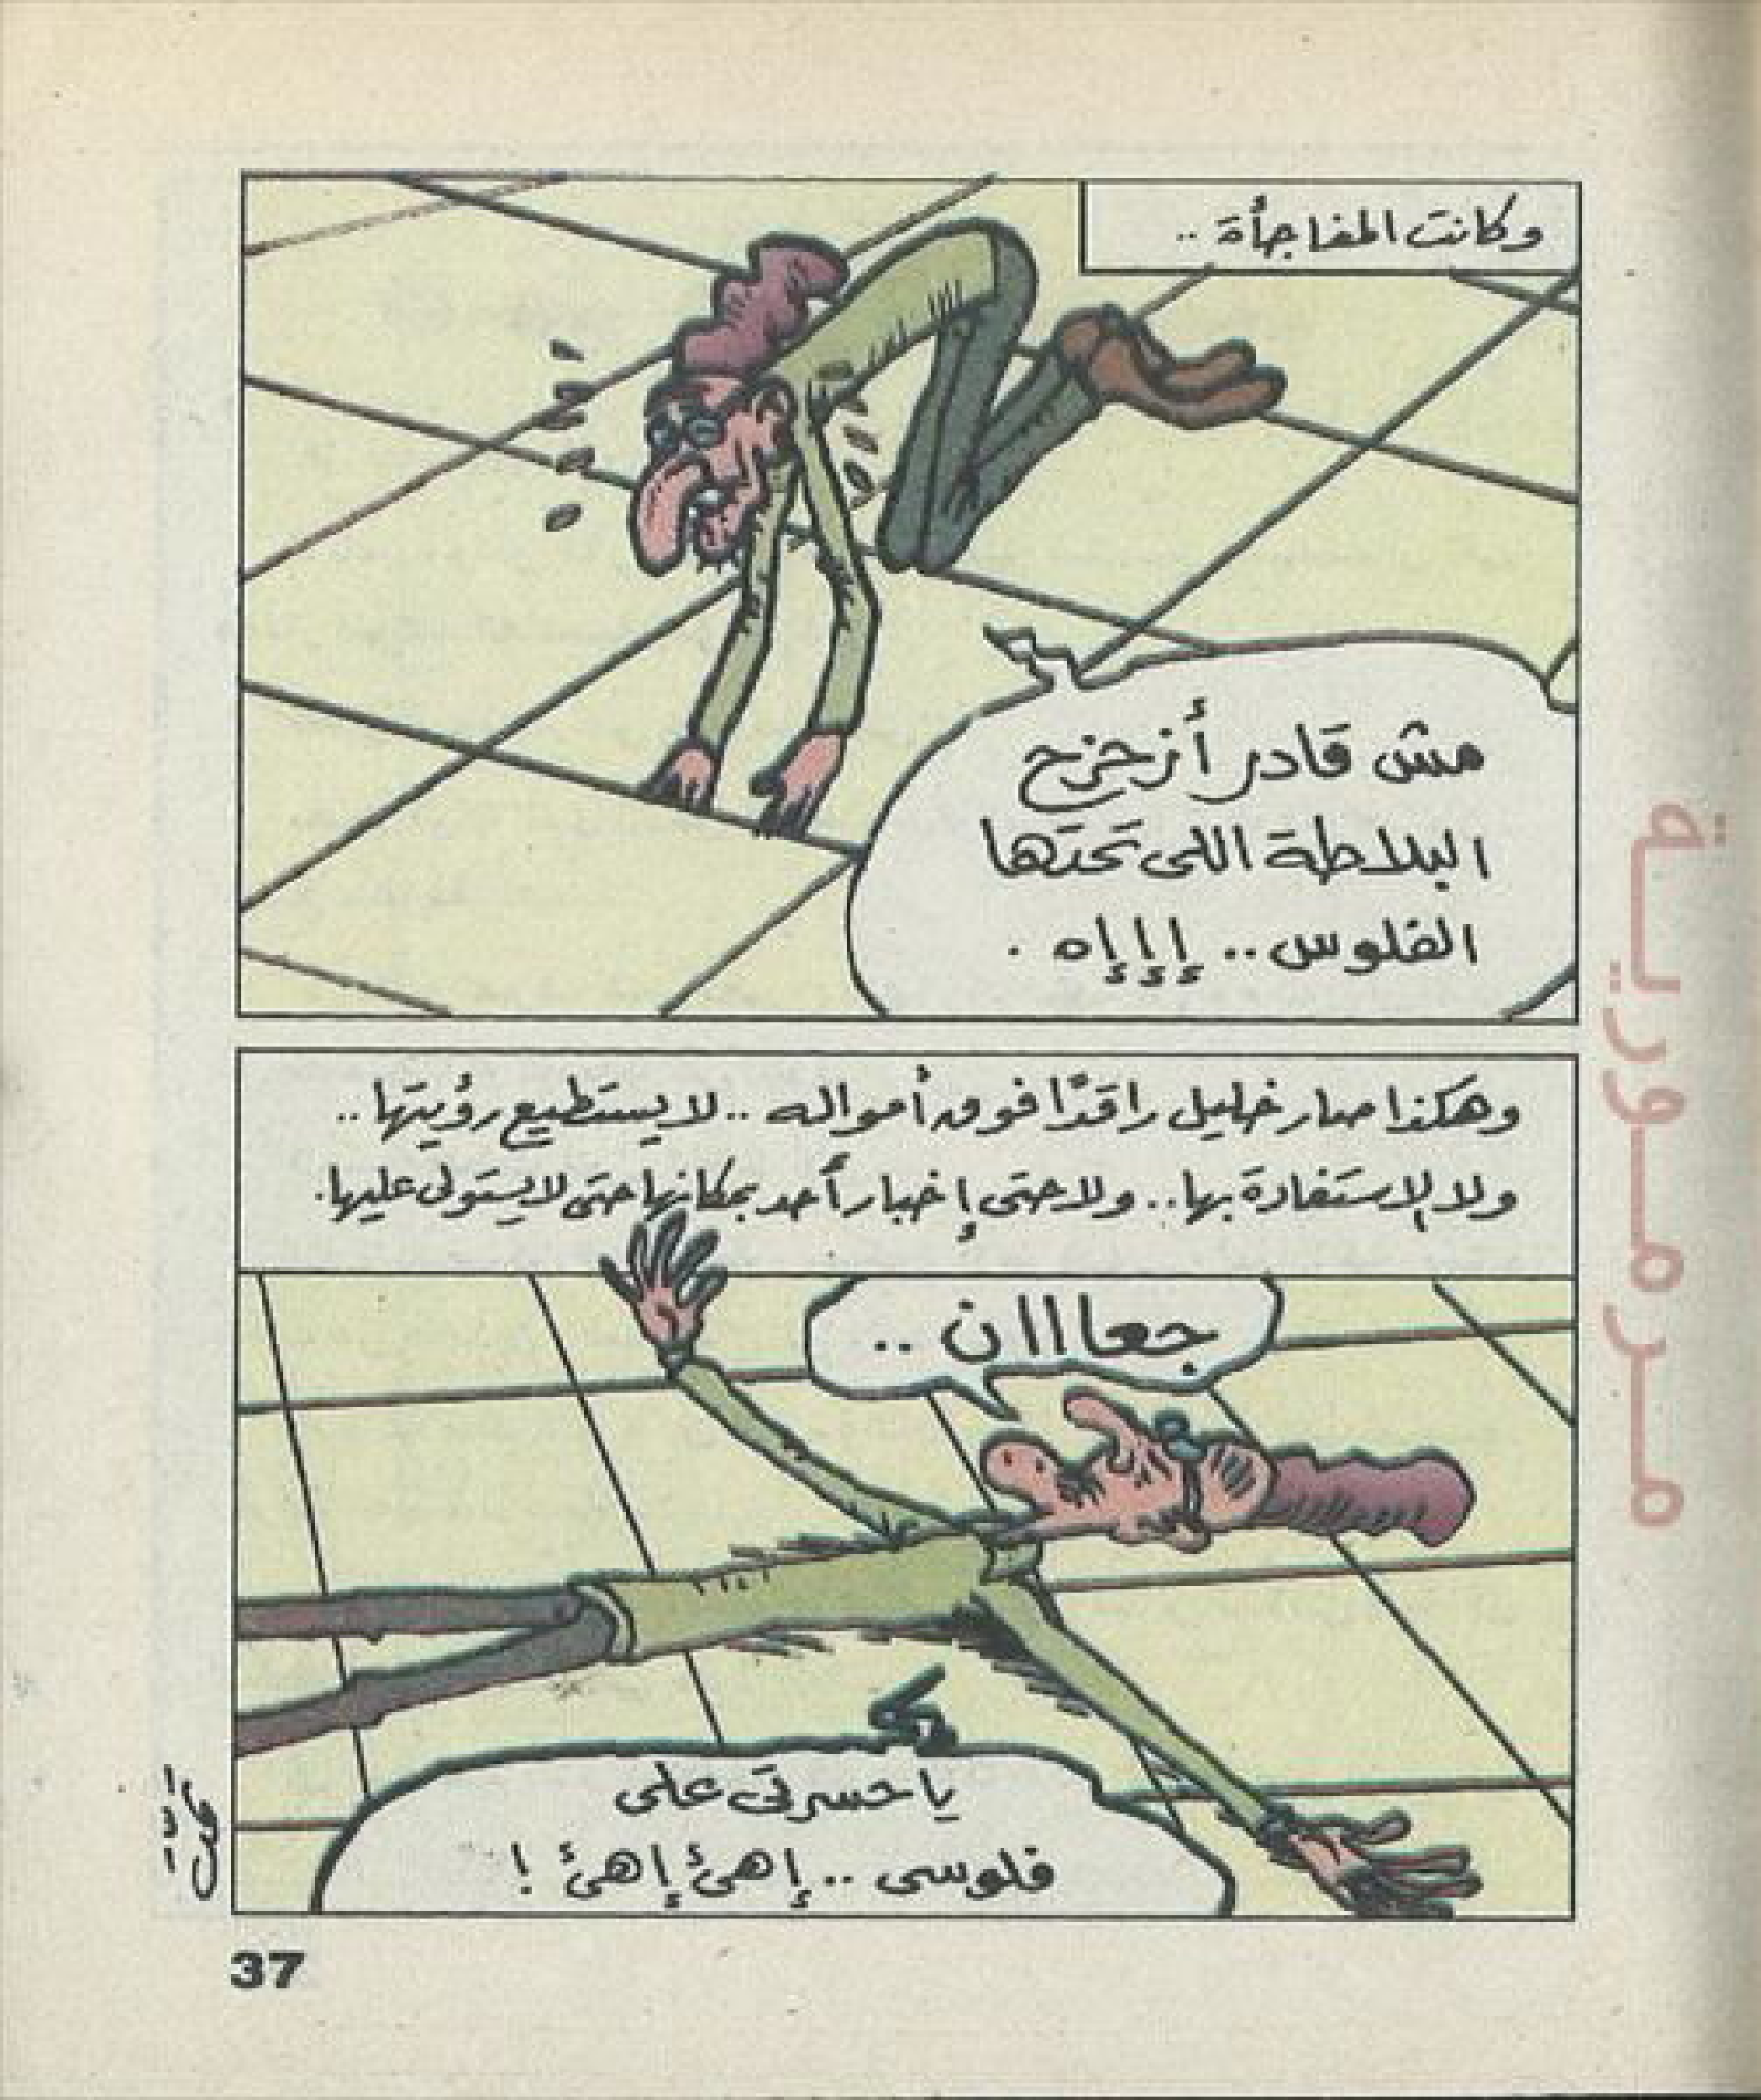 وكانت المفاجأة ..
مش قادر أزحزح
البلاطة اللى تحتها
الفلوس .. إإإاه .
وهكذا صار خليل راقدًا فوق أمواله .. لا يستطيع رؤيتها ..
ولا الاستفادة بها .. ولا حتى إخبار أحد بمكانها حتى لا يستولى عليها .
جعاااان ..
يا حسرتى على
فلوسى .. إهئ إهئ !
37
مرمورية